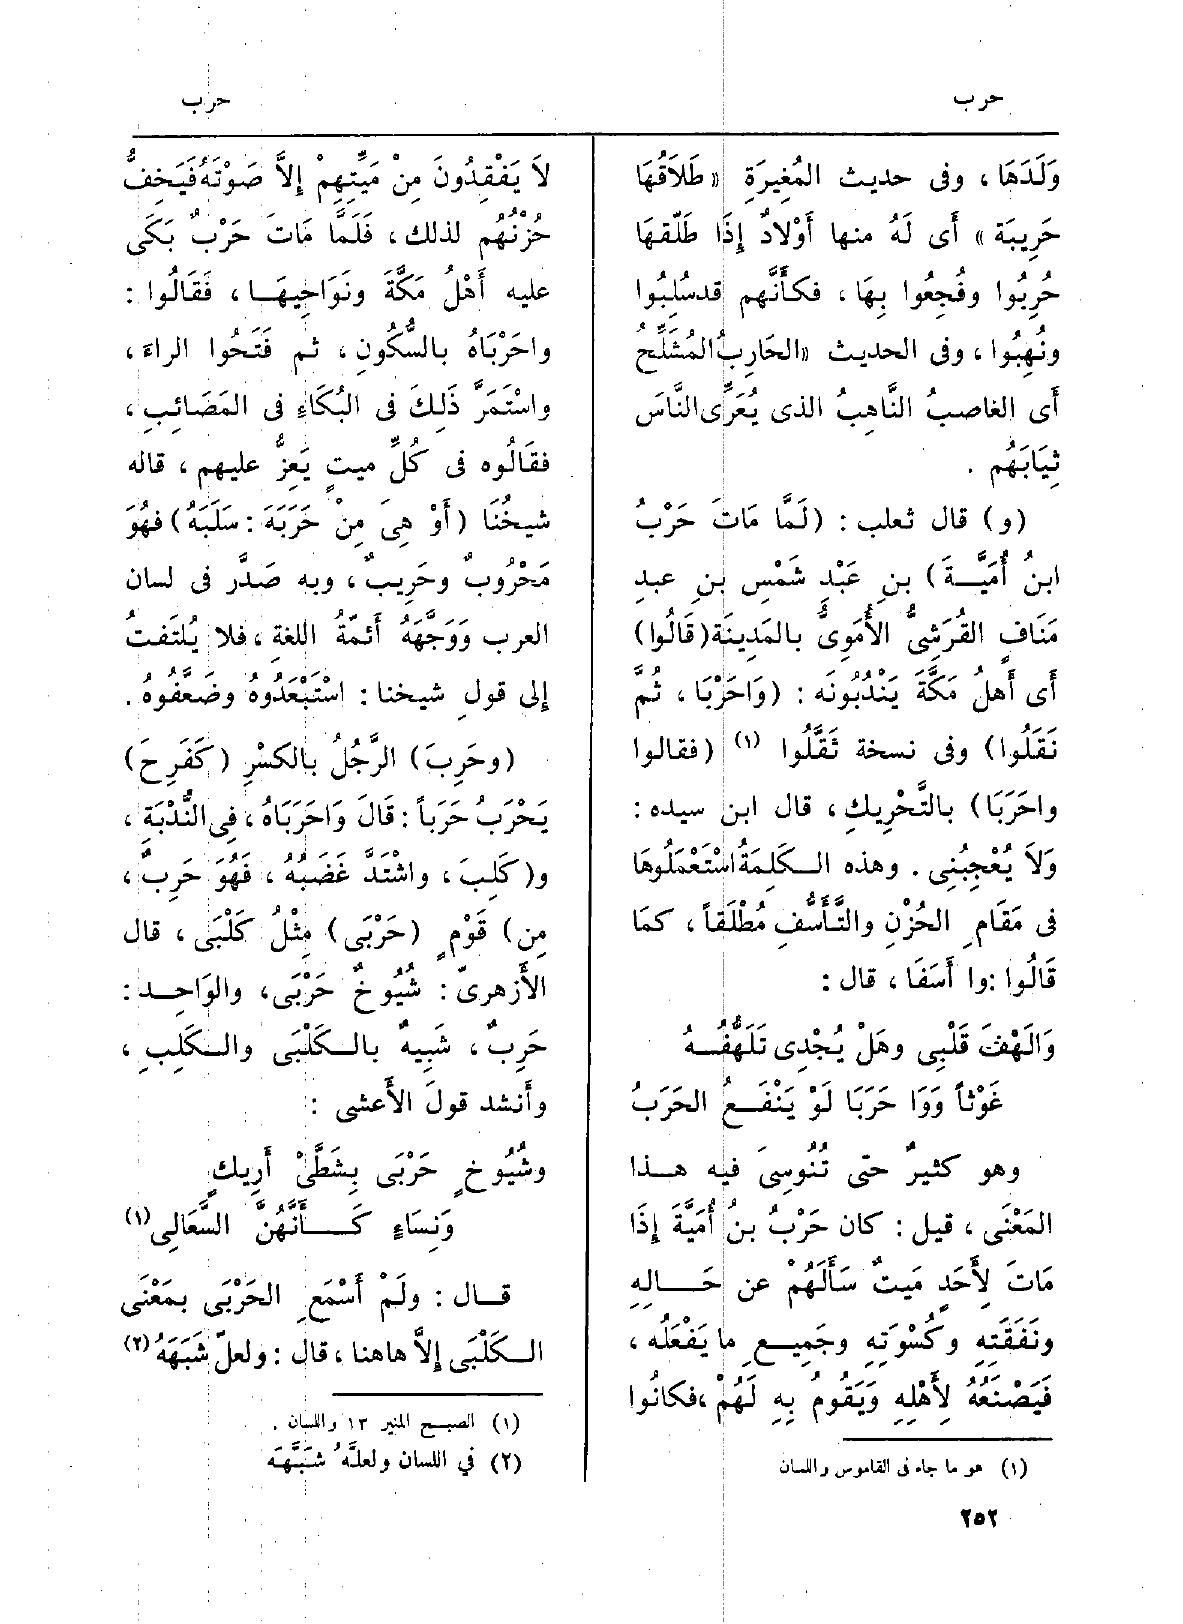 حرب
حرب
وَلَدَهَا ، وفى حديث المُغِيرَةِ « طَلَاقُهَا
حَرِيبَة » أَى لَهُ منها أَوْلَادٌ إِذَا طَلّقهَا
حُرِبُوا وفُجِعُوا بِهَا ، فكأَنَّهم قدسُلِبُوا
ونُهِبُوا ، وفى الحديث « الحَارِبُ المُشَلِّحُ
أَى الغاصبُ النَّاهِبُ الذى يُعَرِّى النَّاسَ
ثِيَابَهُم .
(و) قال ثعلب : (لَمَّا مَاتَ حَرْبُ
ابنُ أُمَيَّـة) بنِ عَبْدِ شَمْسِ بنِ عبدِ
مَنَافٍ القُرَشِىُّ الأُمَوِىُّ بالمَدِينَة (قَالُوا)
أَى أَهلُ مَكَّةَ يَنْدُبُونَه : (وَاحَرْبَا ، ثُمَّ
نَقَلُوا) وفى نسخة ثَقَّلُوا (١) (فقالوا
واحَرَبَا) بالتَّحْرِيكِ ، قال ابن سيده :
وَلَا يُعْجِبُنِى . وهذه الـكَلِمَةُ اسْتَعْمَلُوهَا
فى مَقَامِ الحُزْنِ والتَّأَسُّفِ مُطْلَقاً ، كمَا
قَالُوا : وا أَسَفَا ، قال :
وَالَهْفَ قَلْبِى وهَلْ يُجْدِى تَلَهُّفُـهُ
غَوْثاً وَوَا حَرَبَا لَوْ يَنْفَـعُ الحَرَبُ
وهو كثيرٌ حتى تُنُوسِىَ فيه هـذا
المَعْنَى ، قيل : كان حَرْبُ بنُ أُمَيَّةَ إِذَا
مَاتَ لِأَحَدٍ مَيتٌ سَأَلَهُمْ عن حَـالِهِ
ونَفَقَتِهِ وكُسْوَتِهِ وجَمِيـعِ ما يَفْعَلُه ،
فَيَصْنَعُهُ لِأَهْلِهِ وَيَقُومُ بِهِ لَهُمْ ، فكانُوا
(١) هو ما جاء فى القاموس واللسان
لاَ يَفْقِدُونَ مِنْ مَيِّتِهِمْ إِلاَّ صَوْتَهُ فَيَخِفُّ
حُزْنُهُم لذلك ، فَلَمَّا مَاتَ حَرْبٌ بَكَى
عليه أَهْلُ مَكَّةَ ونَوَاحِيهَـا ، فَقَالُوا :
واحَرْبَاهُ بالسُّكُونِ ، ثم فَتَحُوا الراءَ ،
واسْتَمَرَّ ذَلِكَ فى البُكَاءِ فى المَصَائبِ ،
فقَالُوه فى كُلِّ ميتٍ يَعِزُّ عليهم ، قاله
شيخُنَا (أَوْ هِىَ مِنْ حَرَبَهَ : سَلَبَهُ) فهُوَ
مَحْرُوبٌ وحَرِيبٌ ، وبه صَدَّر فى لسان
العرب وَوَجَّهَهُ أَئمَّةُ اللغةِ ، فلا يُلتَفتُ
إلى قولِ شيخنا : اسْتَبْعَدُوهُ وضَعَّفُوهُ .
(وحَرِبَ) الرَّجُلُ بالكسْرِ (كَفَرِحَ)
يَحْرَبُ حَرَباً : قَالَ وَاحَرَبَاهُ ، فِى النُّدْبَةِ ،
و(كَلِبَ ، واشْتَدَّ غَضَبُهُ ، فَهُوَ حَرِبٌ ،
مِن) قَوْمٍ (حَرْبَى) مِثْلُ كَلْبَى ، قال
الأَزهرىّ : شُيُوخٌ حَرْبَى ، والوَاحِـد :
حَرِبٌ ، شَبِيهٌ بالـكَلْبَى والـكَلِبِ ،
وأَنشد قولَ الأَعشى :
وشُيُوخٍ حَرْبَى بِشَطَّىْ أَرِيكٍ
وَنِساءٍ كَـأَنَّهُنَّ السَّعَالِى (١)
قـال : ولَمْ أَسْمَعِ الحَرْبَى بمَعْنَى
الـكَلْبَى إِلاَّ هاهنا ، قال : ولعلّ شَبَهَهُ (٢)
(١) الصبح المنير ١٣ واللسان .
(٢) في اللسان ولعلَّهُ شَبَّهَه
٢٥٢